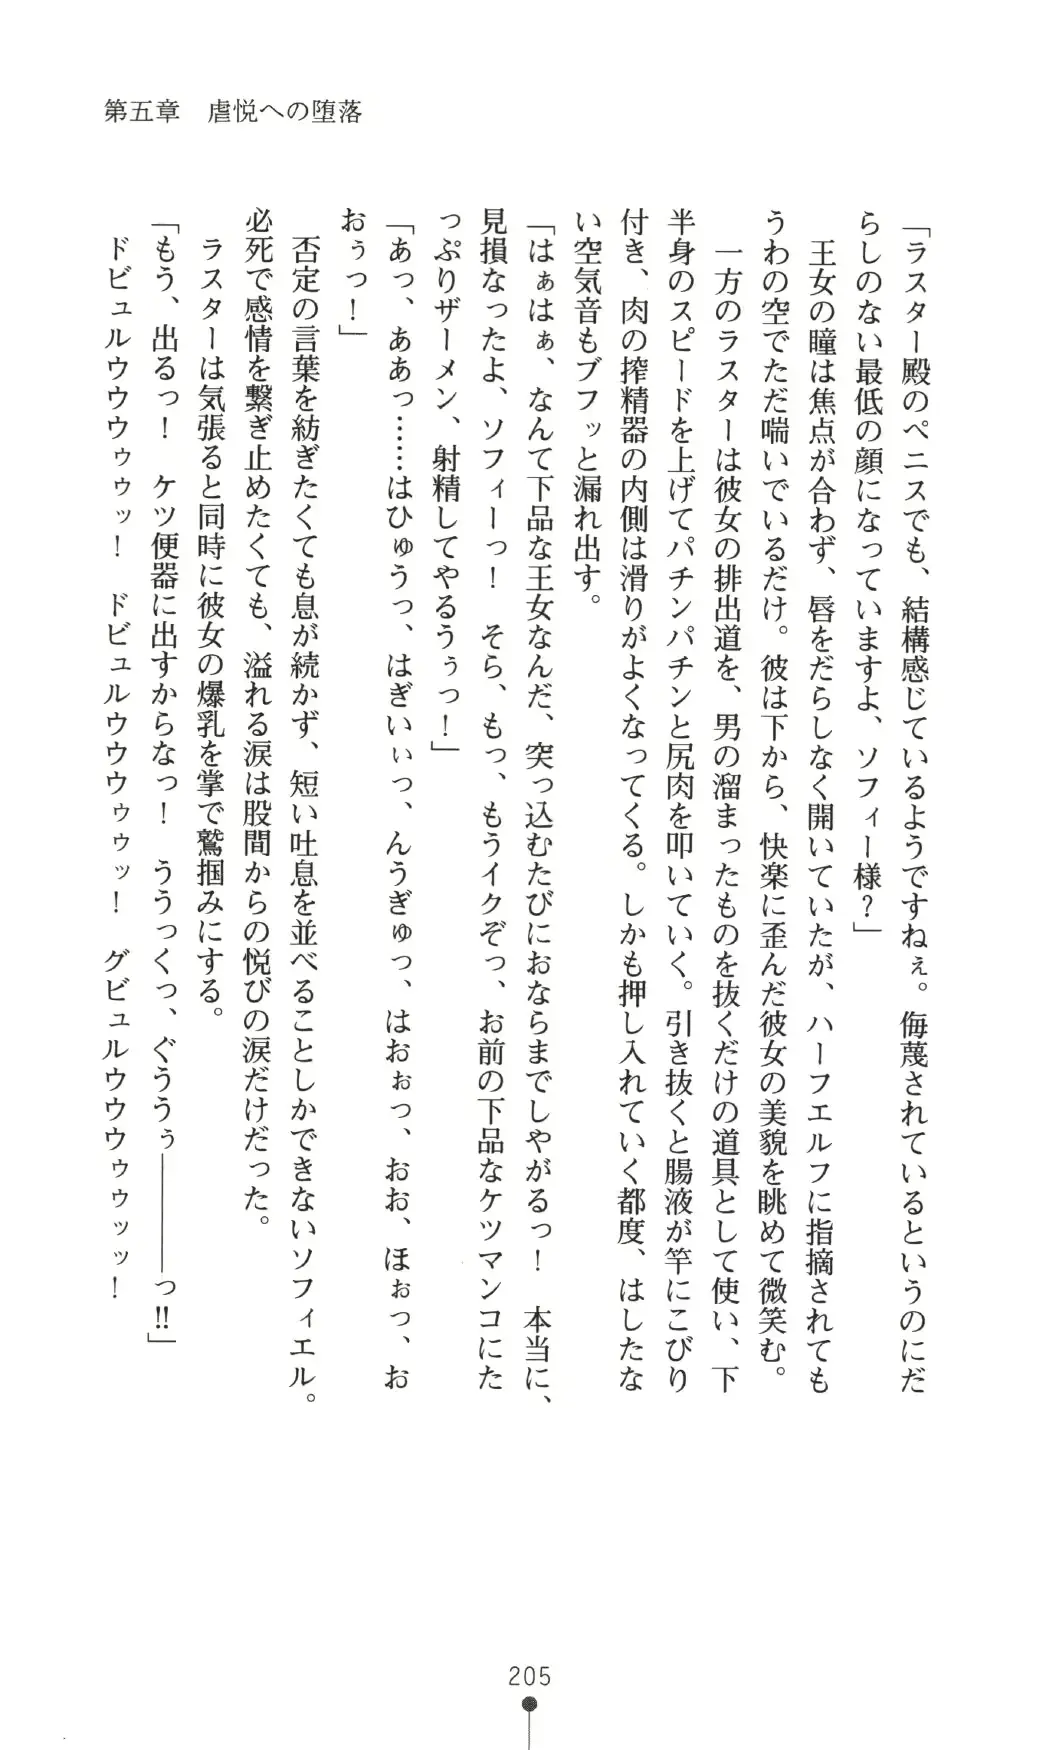 第五章　虐悦への堕落
「ラスター殿のペニスでも、結構感じているようですねぇ。侮蔑されているというのにだ
らしのない最低の顔になっていますよ、ソフィー様？」
　王女の瞳は焦点が合わず、唇をだらしなく開いていたが、ハーフエルフに指摘されても
うわの空でただ喘いでいるだけ。彼は下から、快楽に歪んだ彼女の美貌を眺めて微笑む。
　一方のラスターは彼女の排出道を、男の溜まったものを抜くだけの道具として使い、下
半身のスピードを上げてパチンパチンと尻肉を叩いていく。引き抜くと腸液が竿にこびり
付き、肉の搾精器の内側は滑りがよくなってくる。しかも押し入れていく都度、はしたな
い空気音もブフッと漏れ出す。
「はぁはぁ、なんて下品な王女なんだ、突っ込むたびにおならまでしやがるっ！　本当に、
見損なったよ、ソフィーっ！　そら、もっ、もうイクぞっ、お前の下品なケツマンコにた
っぷりザーメン、射精してやるうぅっ！」
「あっ、ああっ……はひゅうっ、はぎいぃっ、んうぎゅっ、はおぉっ、おお、ほぉっ、お
おぅっ！」
　否定の言葉を紡ぎたくても息が続かず、短い吐息を並べることしかできないソフィエル。
必死で感情を繋ぎ止めたくても、溢れる涙は股間からの悦びの涙だけだった。
　ラスターは気張ると同時に彼女の爆乳を掌で鷲掴みにする。
「もう、出るっ！　ケツ便器に出すからなっ！　ううっくっ、ぐううぅ――――っ!!」
　ドビュルウウウゥゥッ！　ドビュルウウウゥゥッ！　グビュルウウウゥゥッッ！
205